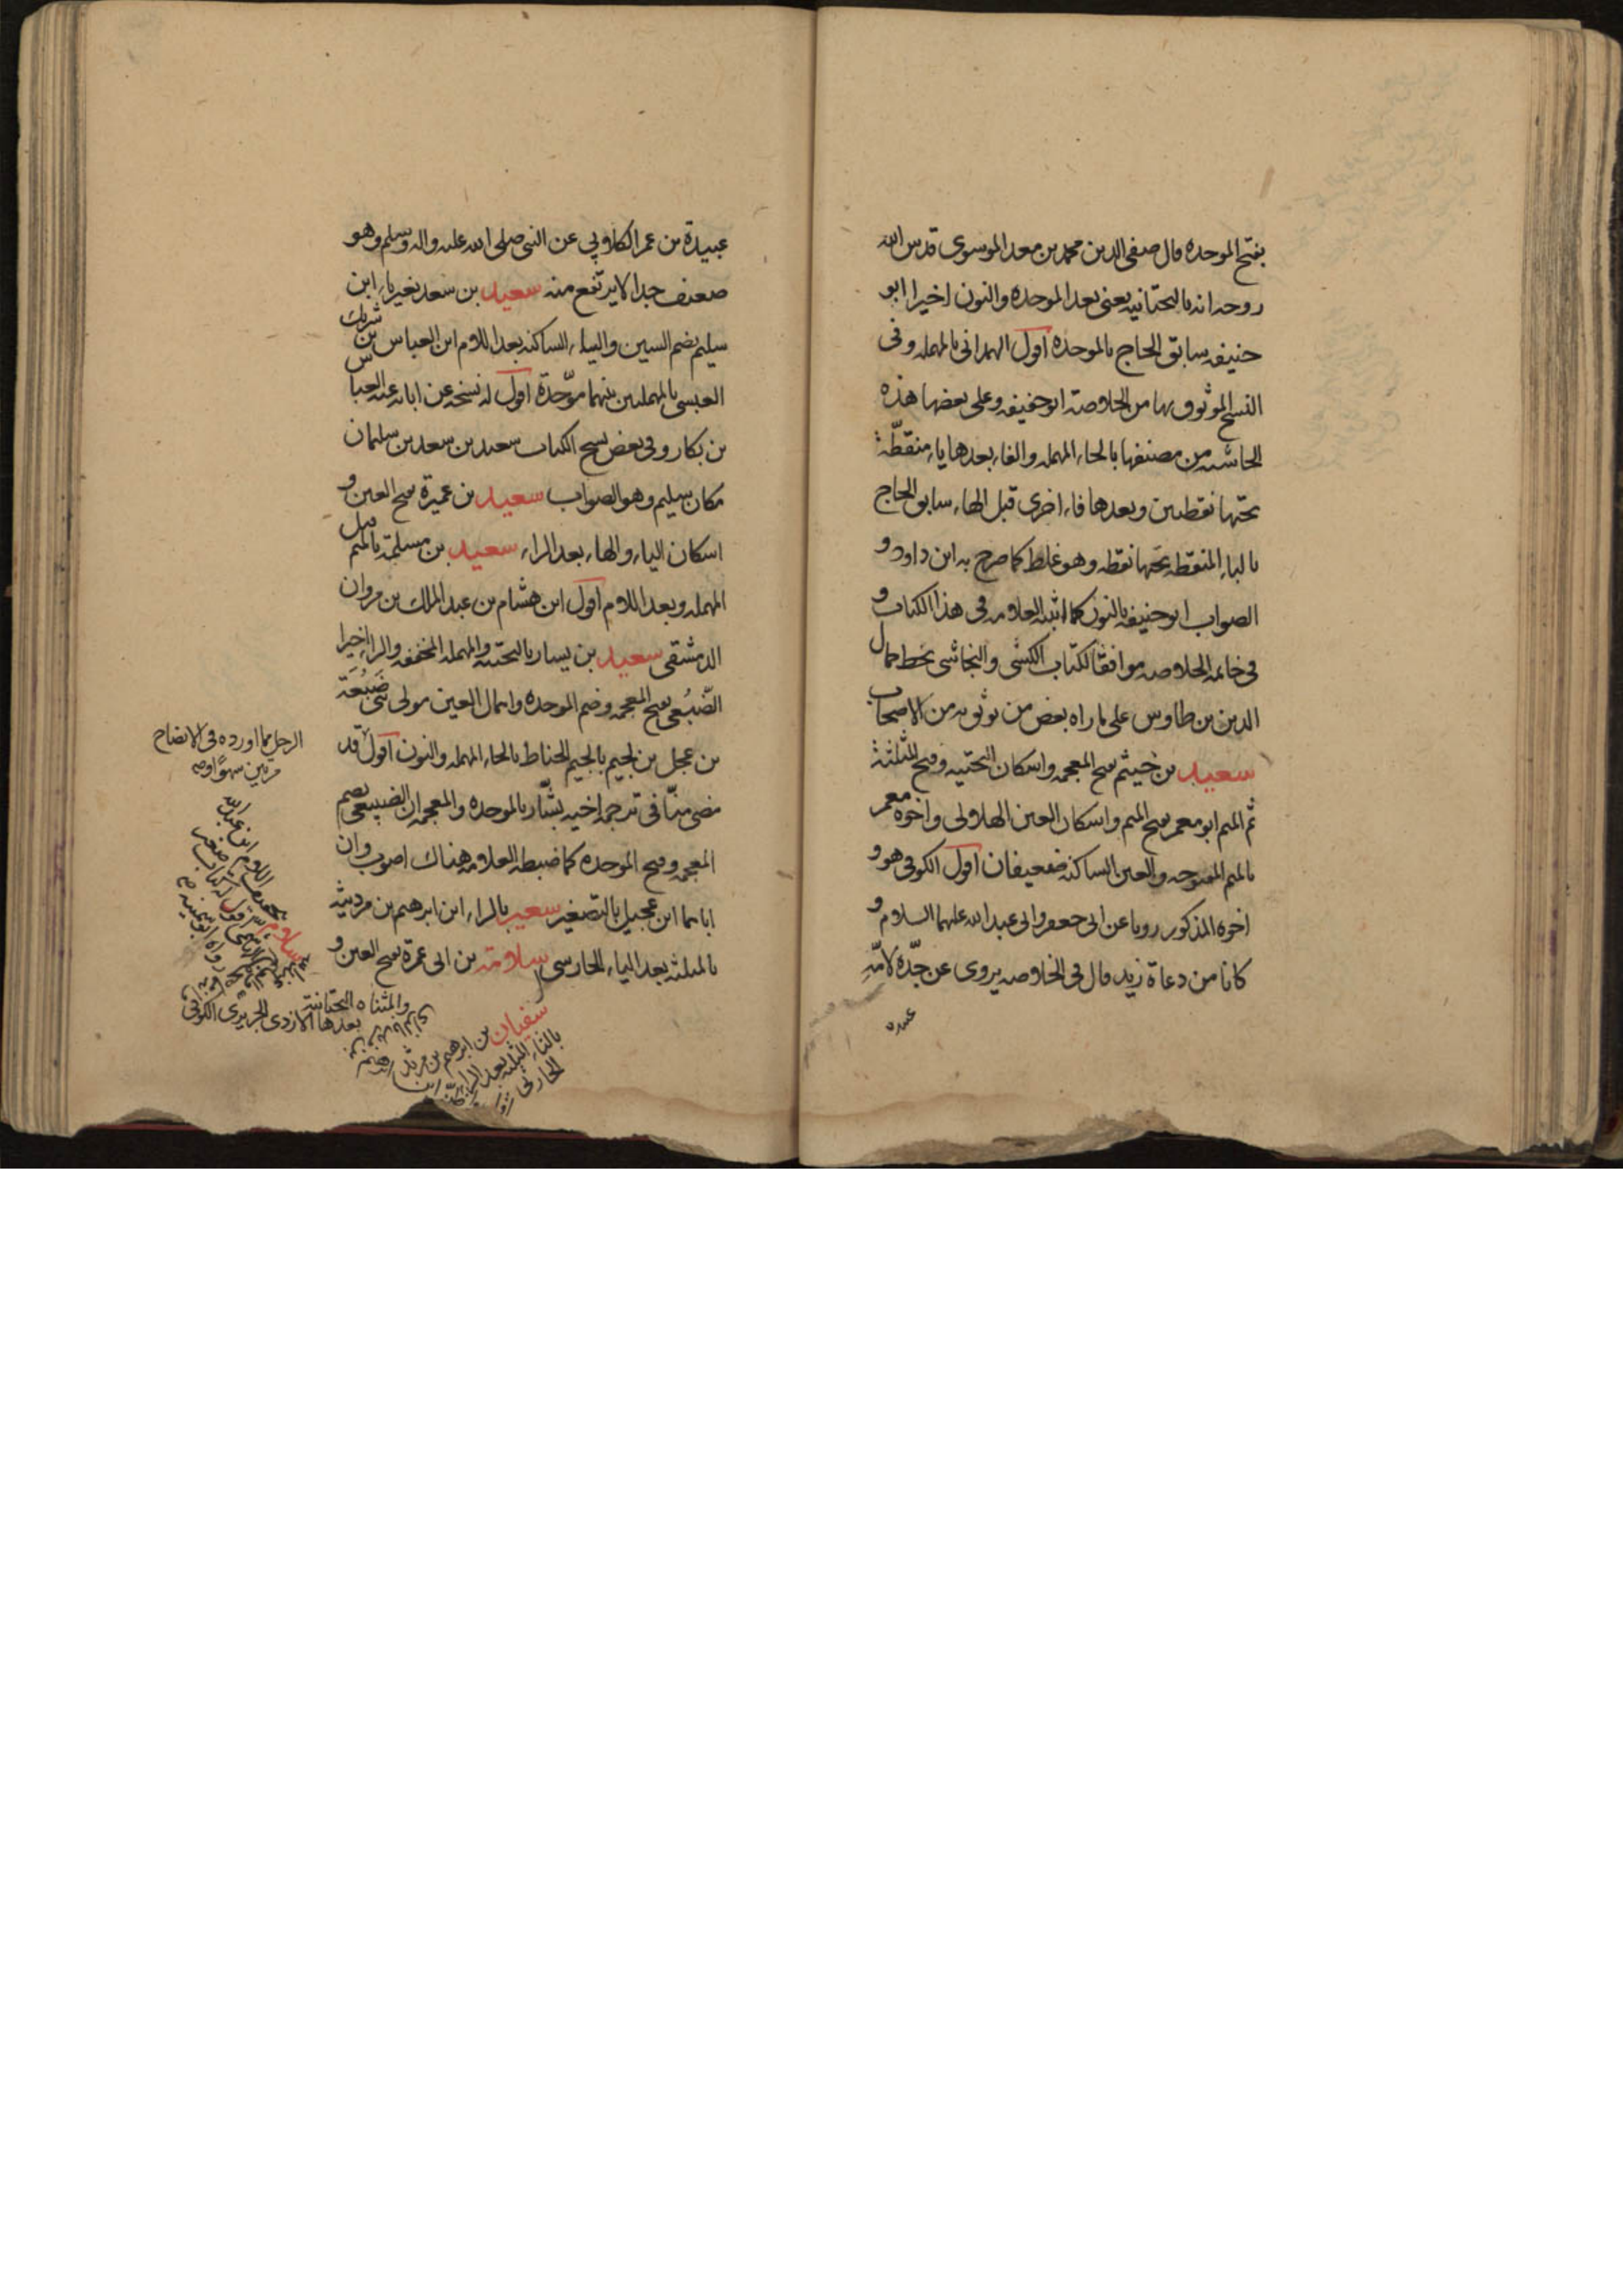 بفتح الموحده قال صفى الدين محمد بن معد الموسوى قدس الله
روحه انه بالتحتانيه يعنى بعد الموحده والنون اخيرا ابو
حنيفه سابق الحاج بالموحده اقول الهمدانى بالمهمله وفى
النسخ الموثوق بها من الخلاصة ابو حفيفه وعلى بعضها هذه
الحاشيه من مصنفها بالحاء المهمله والفاء بعدها ياء منقطّة
تحتها نقطتين وبعدها فاء اخرى قبل الهاء سابق الحاج
بالباء المنقطه تحتها نقطه وهو غلط كما صرح به ابن داود و
الصواب ابو حنيفه بالنون كما اثبته العلامه فى هذا الكتاب و
فى خاتمه الخلاصه موافقا لكتاب الكشى والنجاشى بخط جمال
الدين بن طاوس على ما راه بعض من يوثق به من الاصحاب
سعيد بن خيثم بفتح المعجمه واسكان التحتيه وفتح المثلثة
ثم الميم ابو معمر بفتح الميم واسكان العين الهلالى واخوه معمر
بالميم المفتوحه والعين الساكنه ضعيفان اقول الكوفى هو و
اخوه المذكور رويا عن ابى جعفر وابى عبد الله عليهما السلام و
كانا من دعاة زيد قال فى الخلاصه يروى عن جدّه لامّه
عبيده
عبيدة بن عمر الكلابي عن النبى صلى الله عليه واله وسلم وهو
ضعيف جدا لا يرتفع منه سعيد بن سعد بغير ياء ابن
سليم بضم السين والياء الساكنه بعد اللام ابن العباس بن شريك
العبسى بالمهملتين بينهما موّحدة اقول له نسخه عن ابائه عنه العباس
بن بكار وفى بعض نسخ الكتاب سعيد بن سعد بن سليمان
مكان سليم وهو الصواب سعيد بن عميرة بفتح العين و
اسكان الياء والهاء بعد الراء سعيد بن مسلمة بالميم قبل
المهمله وبعد اللام اقول ابن هشام بن عبد الملك بن مروان
الدمشقى سعيد بن يسار بالتحتيه والمهمله المخففه والراء اخيرا
الضّبُعى بفتح المعجمه وضم الموحده واهمال العين مولى بنى ضَبُعَة
بن عجل بن لجيم بالجيم الحناط بالحاء المهمله والنون اقول قد
مضى منّا فى ترجمه اخيه بشّار بالموحده والمعجمه ان الضبيعى بضم
المعجمه وفتح الموحده كما ضبطه العلامه هناك اصوب وان
اباهما ابن عجيل بالتصغير سعير بالراء ابن ابرهيم بن مرديثه
بالمثلثه بعد الياء الحارسى سلامة بن ابى عمرة بفتح العين و
الرجل مما اورده فى الايضاح
مرتين سهوًا وصه
والمثناه التحتانيه
بعدها الازدى الجريرى الكوفى
سفيان بن ابرهيم بن مرثد
بالثاء المثلثه بعد الراء